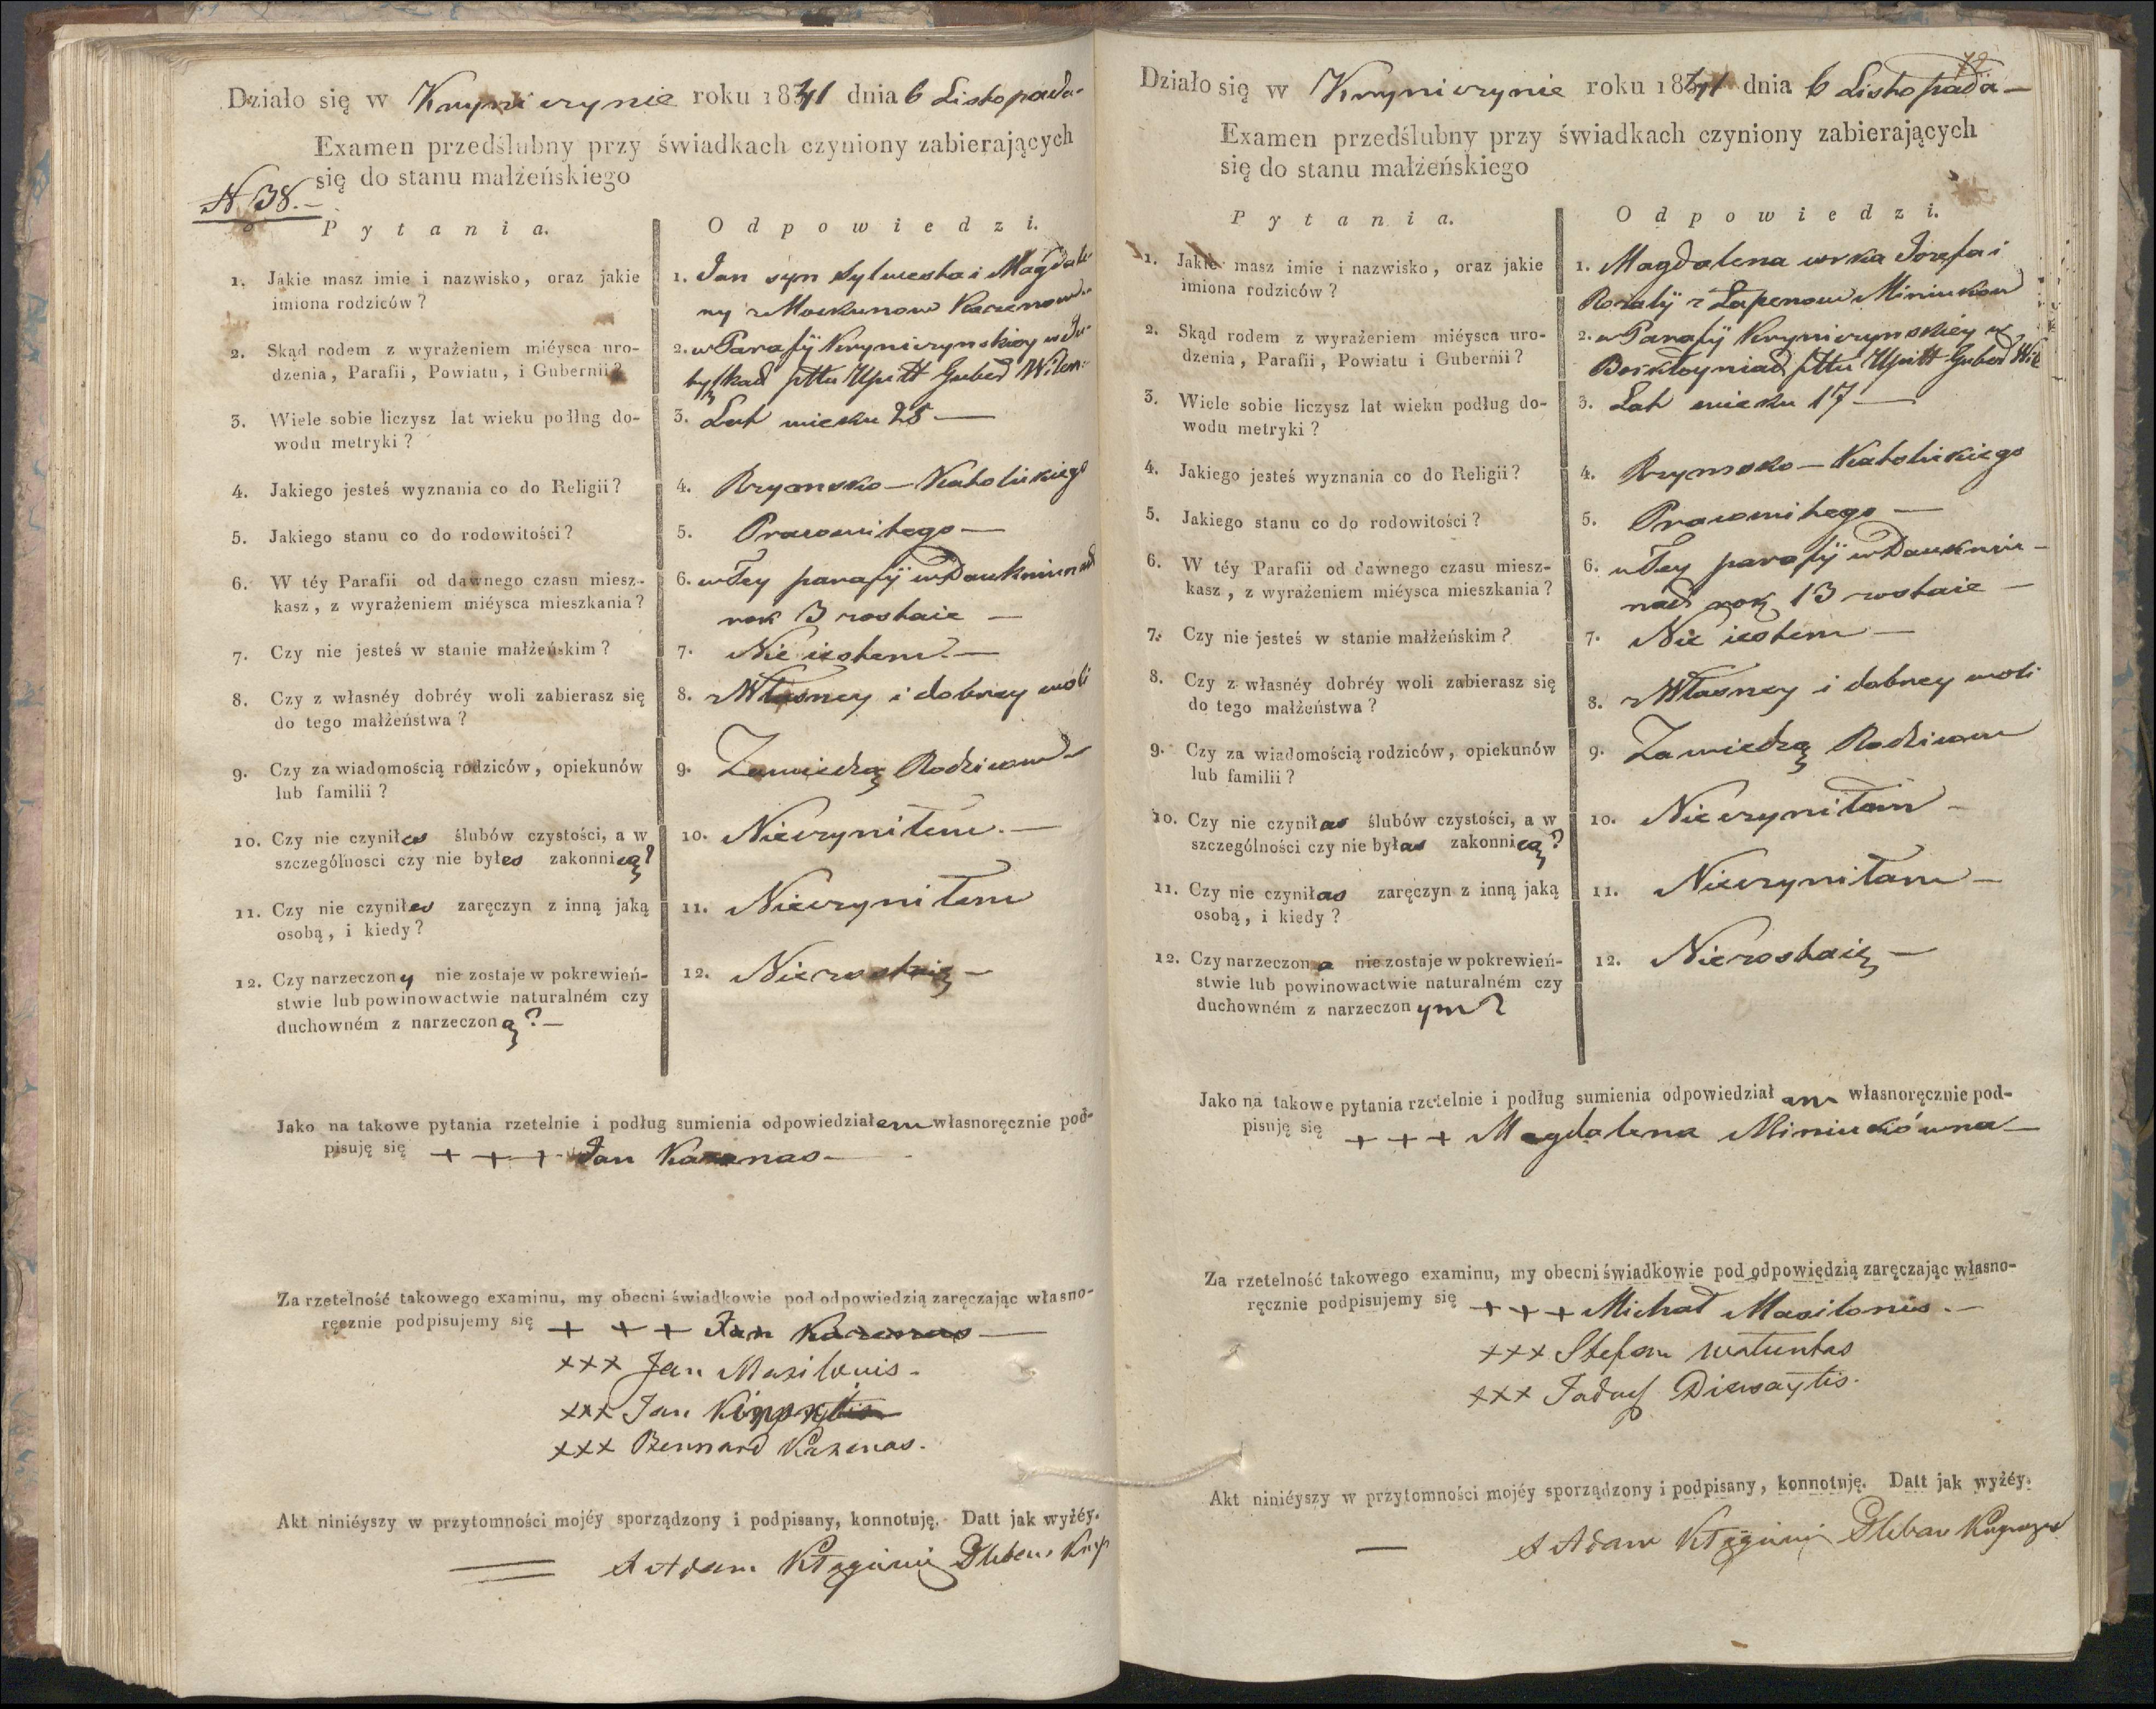 Działo się w Kryniczynie roku 1841 dnia 6 Listopada
Examen przedślubny przy świadkach czyniony zabierających
się do stanu małżeńskiego
N 38.
Pytania. Odpowiedzi.
1. Jakie masz imie i nazwisko, oraz jakie
imiona rodziców?
1. Jan syn Sylwestra i Magdale-
ny z
2. Skąd rodem z wyrażeniem miéysca uro-
dzenia, Parafii, Powiatu, i Gubernii?
2. w Parafÿ Kryniczynskiey w
pttu Upitt Guber Wilen:
3. Wiele sobie liczysz lat wieku podług do-
wodu metryki?
3. Lat wieku 25 —
4. Jakiego jesteś wyznania co do Religii?
4. Rzymsko — Katolickiego
5. Jakiego stanu co do rodowitości?
5. Pracowitego —
6. W téy Parafii od dawnego czasu miesz-
kasz, z wyrażeniem miéysca mieszkania?
6. w Tey parafÿ w
rok 3 zostaie —
7. Czy nie jesteś w stanie małżeńskim?
7. Nie iestem. —
8. Czy z własnéy dobréy woli zabierasz się
do tego małżeństwa?
8. z Własney i dobrey woli
9. Czy za wiadomością rodziców, opiekunów
lub familii?
9. Zawiedzą Rodzicow
10. Czy nie czyniłes ślubów czystości, a w
szczególnosci czy nie byłes zakonnicą?
10. Nieczyniłem. —
11. Czy nie czyniłes zaręczyn z inną jaką
osobą, i kiedy?
11. Nieczyniłem
12. Czy narzeczony nie zostaje w pokrewień-
stwie lub powinowactwie naturalném czy
duchowném z narzeczoną? —
12. Niezostaię —
Jako na takowe pytania rzetelnie i podług sumienia odpowiedziałem własnoręcznie pod-
pisuję się + + + Jan Kazenas —
Za rzetelność takowego examinu, my obecni świadkowie pod odpowiedzią zaręczając własno-
ręcznie podpisujemy się + + + Jan Kazenas —
xxx Jan Masilonis.
xxx Jan
xxx Bernard Kazenas.
Akt niniéyszy w przytomności mojéy sporządzony i podpisany, konnotuję. Datt jak wyżéy.
X Adam Pleban
Działo się w Kryniczynie roku 1841 dnia 6 Listopada —
Examen przedślubny przy świadkach czyniony zabierających
się do stanu małżeńskiego
Pytania. Odpowiedzi.
1. Jakie masz imie i nazwisko, oraz jakie
imiona rodziców?
1. Magdalena corka Jozefa i
Rozalÿ z Miniukow
2. Skąd rodem z wyrażeniem miéysca uro-
dzenia, Parafii, Powiatu i Gubernii?
2. w Parafÿ Kryniczynskiey w
pttu Upitt Guber Wil
3. Wiele sobie liczysz lat wieku podług do-
wodu metryki?
3. Lat wieku 17 —
4. Jakiego jesteś wyznania co do Religii?
4. Rzymsko — Katolickiego
5. Jakiego stanu co do rodowitości?
5. Pracowitego —
6. W téy Parafii od dawnego czasu miesz-
kasz, z wyrażeniem miéysca mieszkania?
6. w Tey parafÿ w
rok 13 zostaie —
7. Czy nie jesteś w stanie małżeńskim?
7. Nie iestem —
8. Czy z własnéy dobréy woli zabierasz się
do tego małżeństwa?
8. z Własney i dobrey woli
9. Czy za wiadomością rodziców, opiekunów
lub familii?
9. Zawiedzą Rodzicow
10. Czy nie czyniłas ślubów czystości, a w
szczególności czy nie byłas zakonnicą?
10. Nieczyniłam —
11. Czy nie czyniłas zaręczyn z inną jaką
osobą, i kiedy?
11. Nieczyniłam —
12. Czy narzeczona nie zostaje w pokrewień-
stwie lub powinowactwie naturalném czy
duchowném z narzeczonym?
12. Niezostaię —
Jako na takowe pytania rzetelnie i podług sumienia odpowiedziałam własnoręcznie pod-
pisuję się + + + Magdalena Miniukówna —
Za rzetelność takowego examinu, my obecni świadkowie pod odpowiedzią zaręczając własno-
ręcznie podpisujemy się + + + Michał Masilonis. —
xxx Stefan Watuntas
xxx Taduf Dzewaytis.
Akt niniéyszy w przytomności mojéy sporządzony i podpisany, konnotuję. Datt jak wyżéy.
X Adam Pleban